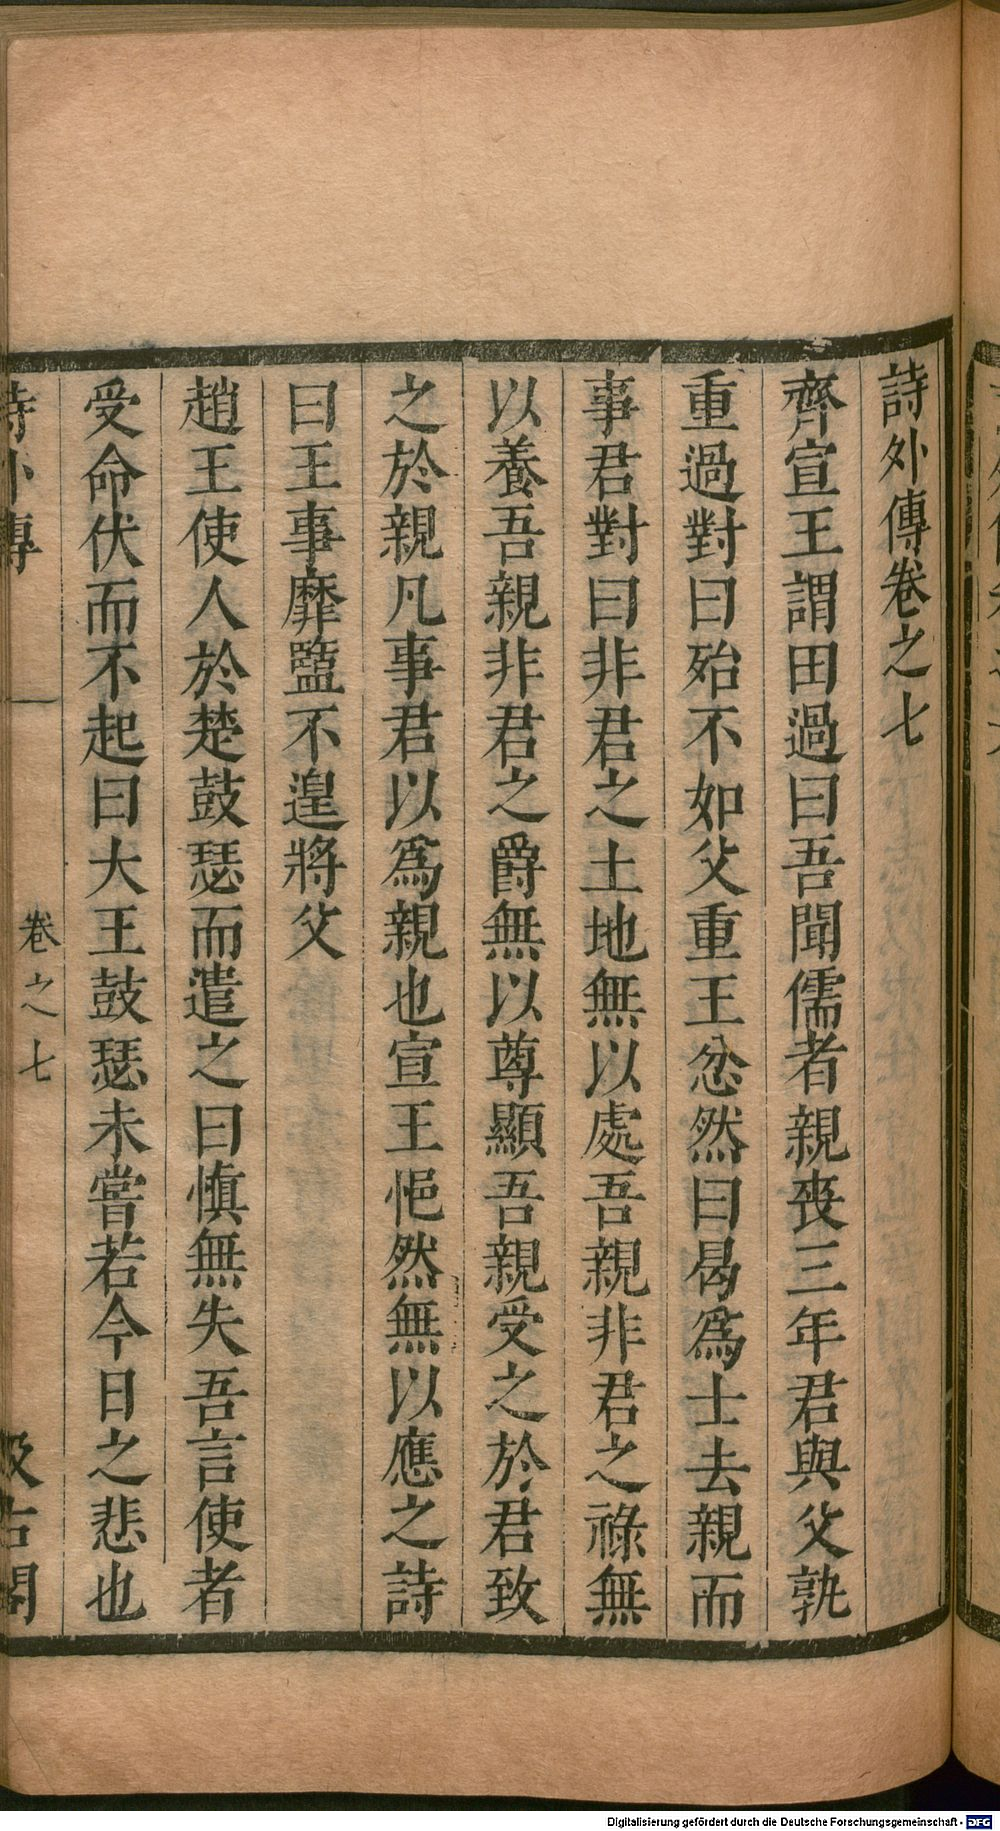 詩外傳卷之七
齊宣王謂田過曰吾聞儒者親喪三年君與父孰
重過對曰殆不如父重王忿然曰曷爲士去親而
事君對曰非君之土地無以處吾親非君之祿無
以養吾親非君之爵無以尊顯吾親受之於君致
之於親凡事君以爲親也宣王悒然無以應之詩
曰王事靡盬不遑將父
趙王使人於楚鼓瑟而遣之曰慎無失吾言使者
受命伏而不起曰大王鼓瑟未嘗若今日之悲也
詩外傳 卷之七 汲古閣
Digitalisierung gefördert durch die Deutsche Forschungsgemeinschaft - DFG